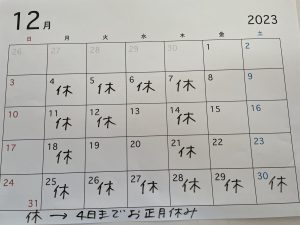 12月 2023
日 月 火 水 木 金 土
26 27 28 29 30 1 2
3 4 休 5 休 6 休 7 休 8 9
10 11 休 12 休 13 14 休 15 16
17 18 休 19 20 21 休 22 23
24 25 休 26 休 27 休 28 休 29 休 30 休
31
休 → 4日までお正月休み